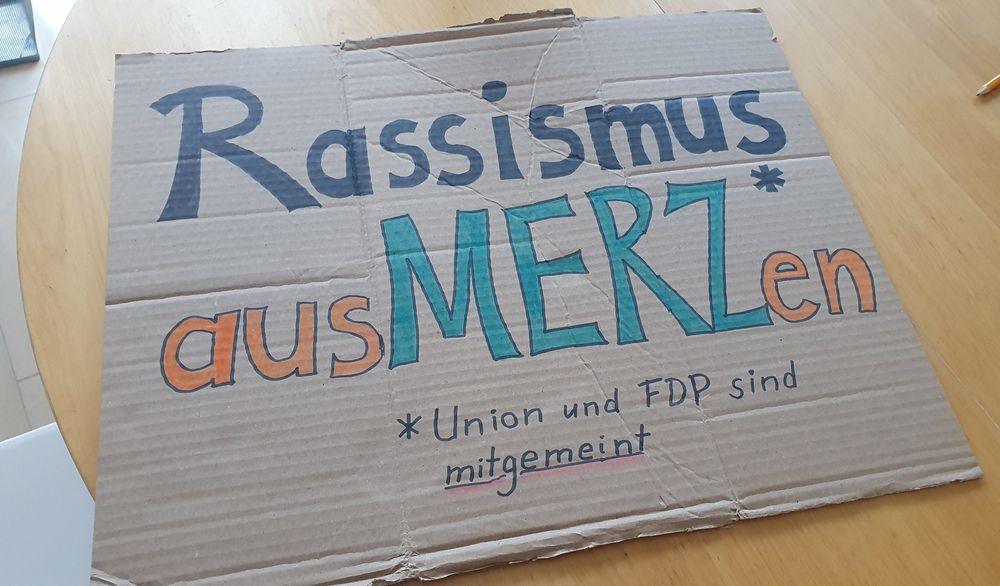 Rassismus*
ausMERZen
*Union und FDP sind
mitgemeint